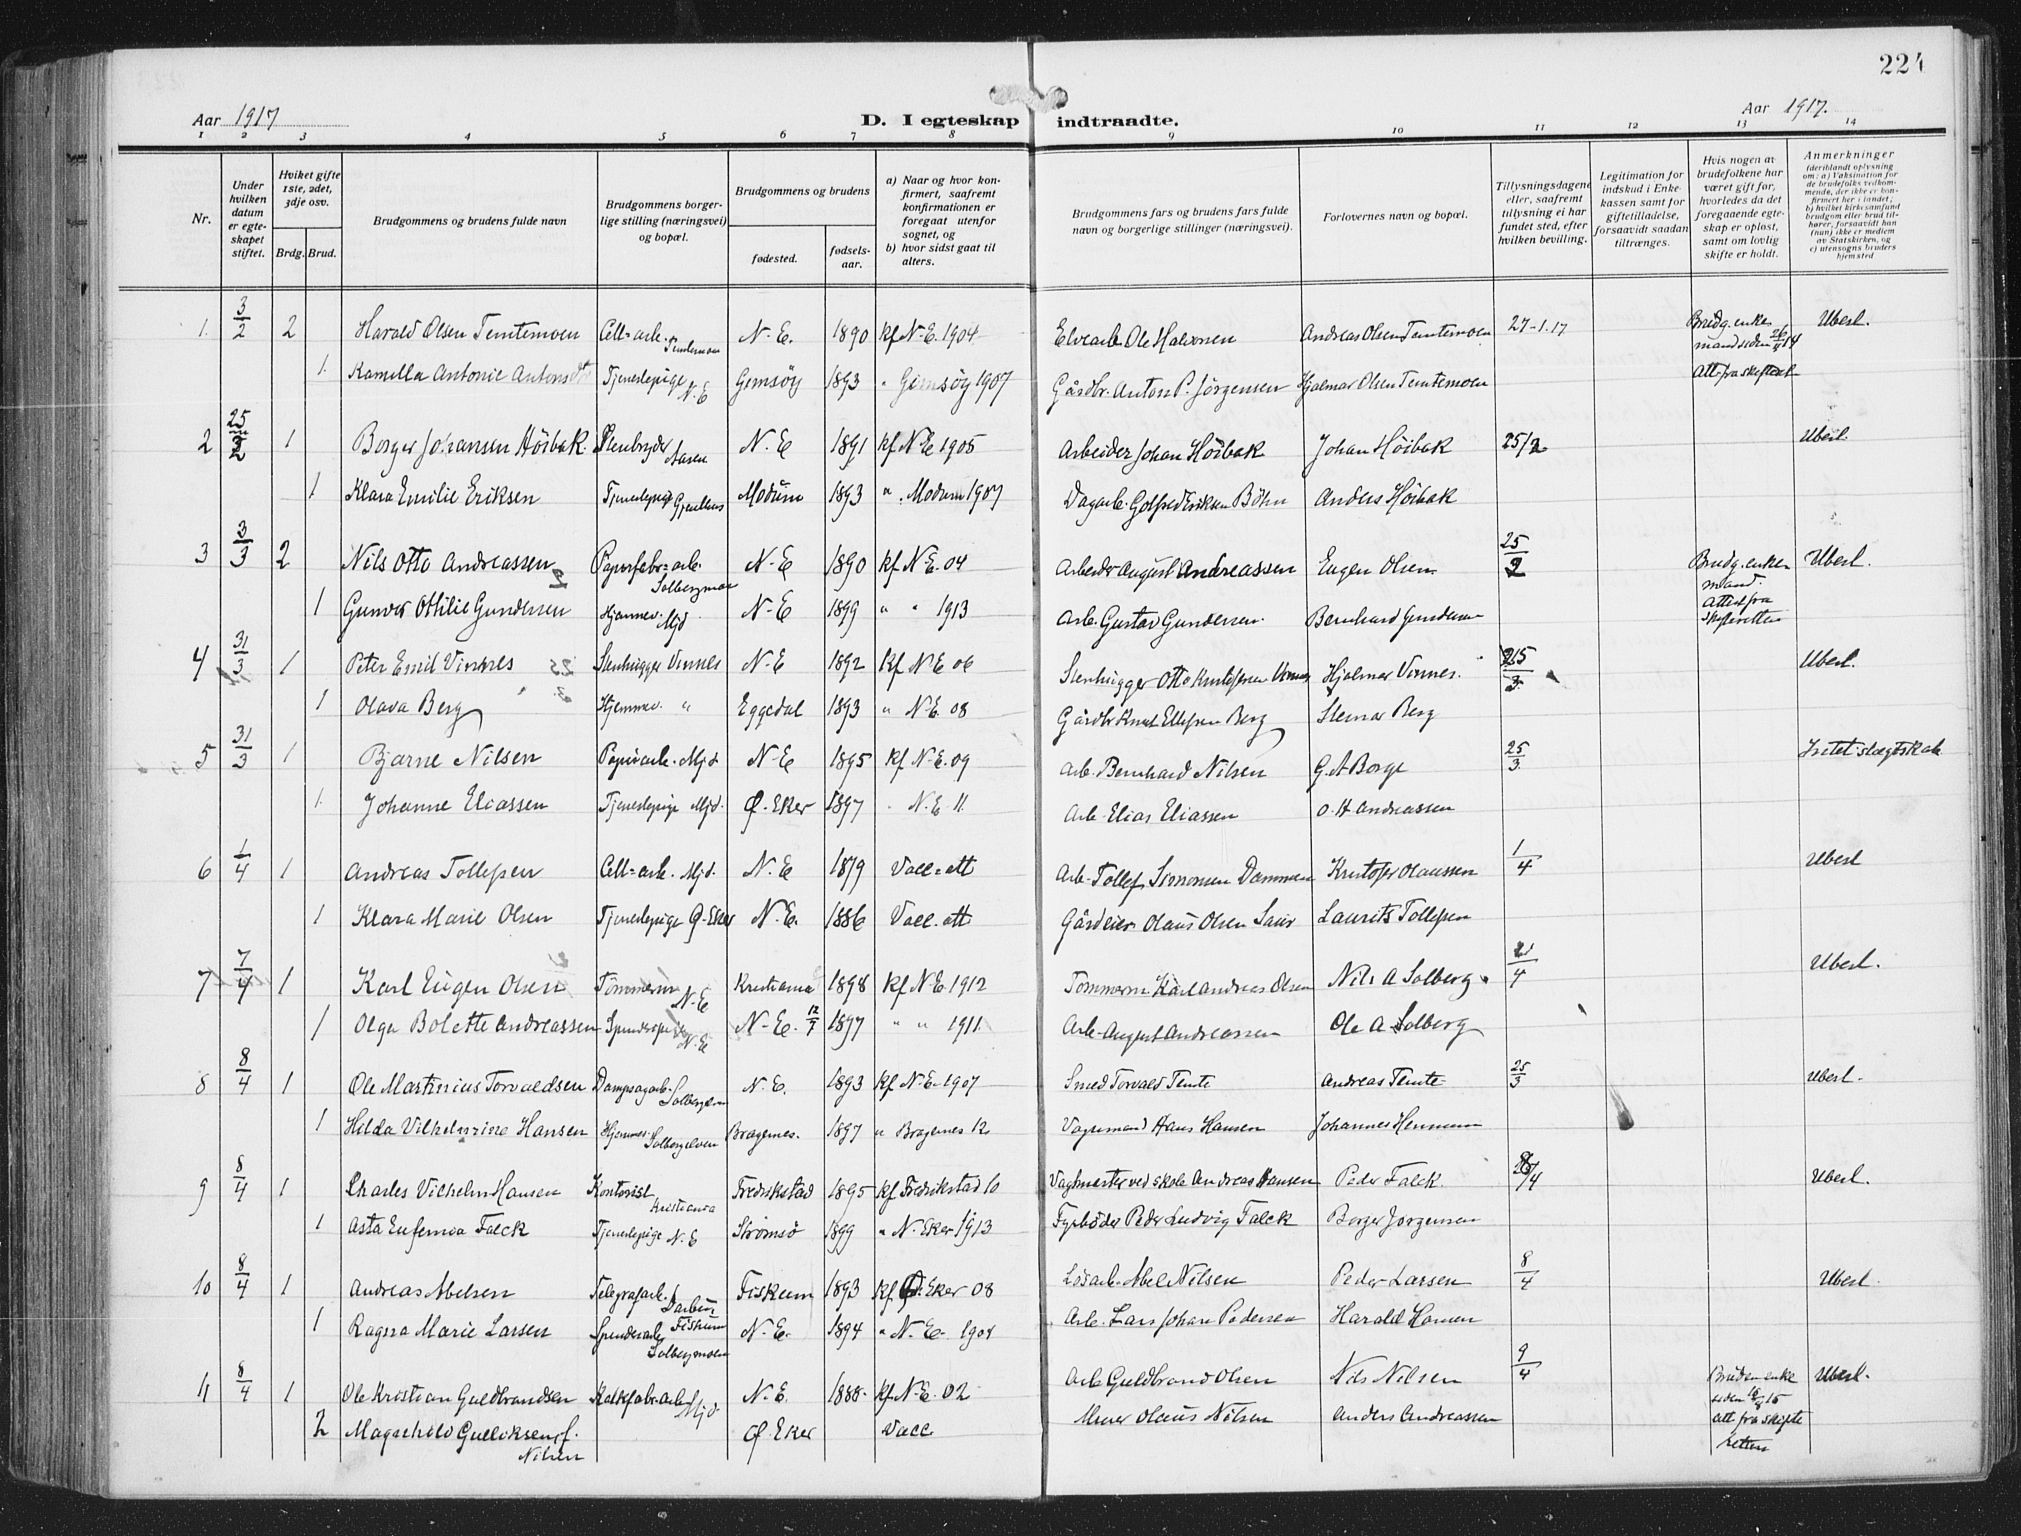 224
Aar 1917
D. I egteskap indtraadte.
Aar 1917.
1 2 3 4 5 6 7 8 9 10 11 12 13 14
Nr.
Under hvilken datum er egteskapet stiftet.
Hviket gifte 1ste, 2det, 3dje osv.
Brdg. Brud.
Brudgommens og brudens fulde navn
Brudgommens borgerlige stilling (næringsvei) og bopæl.
Brudgommens og brudens
fødested.
fødselsaar.
a) Naar og hvor konfirmert, saafremt konfirmationen er foregaat utenfor sognet, og
b) hvor sidst gaat til alters.
Brudgommens fars og brudens fars fulde navn og borgerlige stillinger (næringsvei).
Forlovernes navn og bopæl.
Tillysningsdagene eller, saafremt tillysning ei har fundet sted, efter hvilken bevilling.
Legitimation for indskud i Enkekassen samt for giftetilladelse, forsaavidt saadan tiltrænges.
Hvis nogen av brudefolkene har været gift før, hvorledes da det foregaaende egteskap er opløst, samt om lovlig skifte er holdt.
Anmerkninger
(deriblandt oplysning om: a) Vaksination for de brudefolks vedkommende, der ikke er konfirmert her i landet; b) hvilket kirkesamfund brudgom eller brud tilhører, forsaavidt han (hun) ikke er medlem av Statskirken, og c) utensogns bruders hjemsted
1. 3/2 2 Harald Olsen Temtemoen Cell=arb. Temtemoen N-E. 1890 kf N-E. 1904 Elvearb Ole Halvorsen Andreas Olsen Temtemoen 27-1.17 Brudg. enkemand siden 26/4 14 Att. fra skifterek Ubesl.
1. Kamilla Antonie Antonsdtr Tjenestepige N.E Gimsøy 1893 " Gimsøy 1907 Gårdbr. Anton P. Jørgensen Hjalmar Olsen Temtemoen
2 25/2 1 Borger Johansen Höibak. Stenbryder Aasen N.E 1891 kf N-E 1905 Arbeider Johan Höibak Johan Höibak 25/2 Ubesl.
1 Klara Emilie Eriksen Tjenestepige Modum 1893 " Modum 1907 Dagarb. Eriksen Böhn Anders Höibak
3 3/3 2 Nils Otto Andreassen Papirfabr=arb. Solbergmoen N-E 1890 kf N.E. 04 Arbeider August Andreassen Eugen Olsen 25/2 Brudg. enkemand. Attest fra skifteretten Ubesl.
1 Gunvor Ottilie Gundersen Hjemmev. Mjd. N-E 1899 " " 1913 Arb. Gustav Gundersen. Bernhard Gundersen
4 31/3 1 Peter Emil Vinnes Stenhugger Vinnes N-E 1892 Kf N E 06 Stenhugger Otto Kristofersen Vinnes Hjalmar Vinnes. 25/3 Ubesl.
1 Olava Berg Hjemmev. " Eggedal 1893 " N-E. 08 Gårdbr Knut Ellefsen Berg Steinar Berg
5 31/3 1 Bjarne Nilsen Papirarb. Mjd. N-E 1895 Kf N.E. 09 Arb. Bernhard Nilsen G. A Borge 25/3 Intet slægtskab
1. Johanne Eliassen Tjenestepige Mjd. Ø-Eker 1897 " N.E. 11. Arb. Elias Eliassen O. H Andreassen
6 1/4 1 Andreas Tollefsen Cell=arb. Mjd. N-E 1879 Vacc=att Arb. Tollef Simonsen Dammen Kristofer Olaussen 1/4 Ubesl
1 Klara Marie Olsen Tjenestepige Ø-Eker N.E. 1886 Vacc-att Gårdeier Olaus Olsen Saur Laurits Tollefsen
7 7/4 1 Karl Eugen Olsen Tømmerm N-E Kristiania 1898 kf N.E. 1912 Tømmerm. Karl Andreas Olsen Nils A Solberg. /4 Ubesl.
1 Olga Bolette Andreassen Spinderpige N-E N-E. 12/7 1897 " " 1911. Arb. August Andreassen Ole A Solberg
8 8/4 1 Ole Martinius Torvaldsen Dampsagarb. Solbergelven N.E. 1893 kf N-E. 1907 Smed Torvald Temte Andreas Temte 25/3 Ubesl.
1 Hilda Vilhelmine Hansen Hjemmev. Solbergelven Bragernes. 1897 " Bragernes 12 Vognmand Hans Hansen Johannes Hennum
9 8/4 1 Charles Vilhelm Hansen Kontorist Kristiania Fredrikstad 1895 kf Fredrikstad 10 Vagtmester ved skole Andreas Hansen Peder Falck. /4 Ubesl.
1 Asta Eufemia Falck Tjenestepige N.E Strømsø 1899 " N. Eker 1913 Fyrbøder Peder Ludvig Falck Borger Jorgensen
10 8/4 1 Andreas Abelsen Telegrafarb. Darbu, Fiskum Fiskum 1893 kf Ø. Eker 08 Løsarb. Abel Nilsen Peder Larsen 8/4 Ubesl.
1 Ragna Marie Larsen Spinderarb Solbergmoen N.E. 1894 " N.E. 1908 Arb. Lars Johan Pedersen Harald Hansen
11 8/4 1 Ole Kristian Guldbrandsen Kalkfabr=arb Mjd. N.E. 1888 kf N.E. 02 Arb Guldbrand Olsen Nils Nilsen 9/4 Bruden enke siden 16/8 15 att fra skifteretten Ubesl.
2 Magnhild Gulliksen, f. Nilsen Ø. Eker Vacc. Murer Olaus Nilsen Anders Andreassen